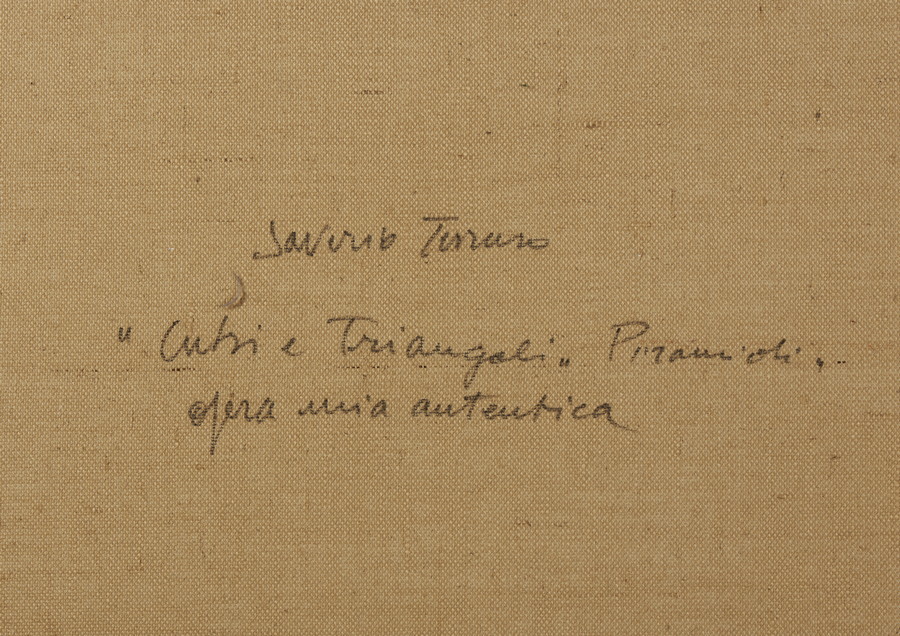 Saverio Terruso
" Cubi e Triangoli „ Piramidi „
opera mia autentica